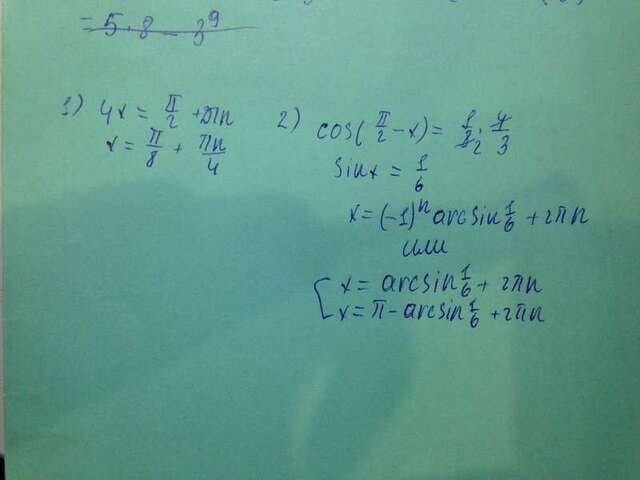 = 5 · 8 - 3⁹
1) 4x = π/2 + πn
x = π/8 + πn/4
2) cos(π/2 - x) = 1/82 · 4/3
sinx = 1/6
x = (-1)ⁿ arcsin 1/6 + 2πn
или
[ x = arcsin 1/6 + 2πn
x = π - arcsin 1/6 + 2πn